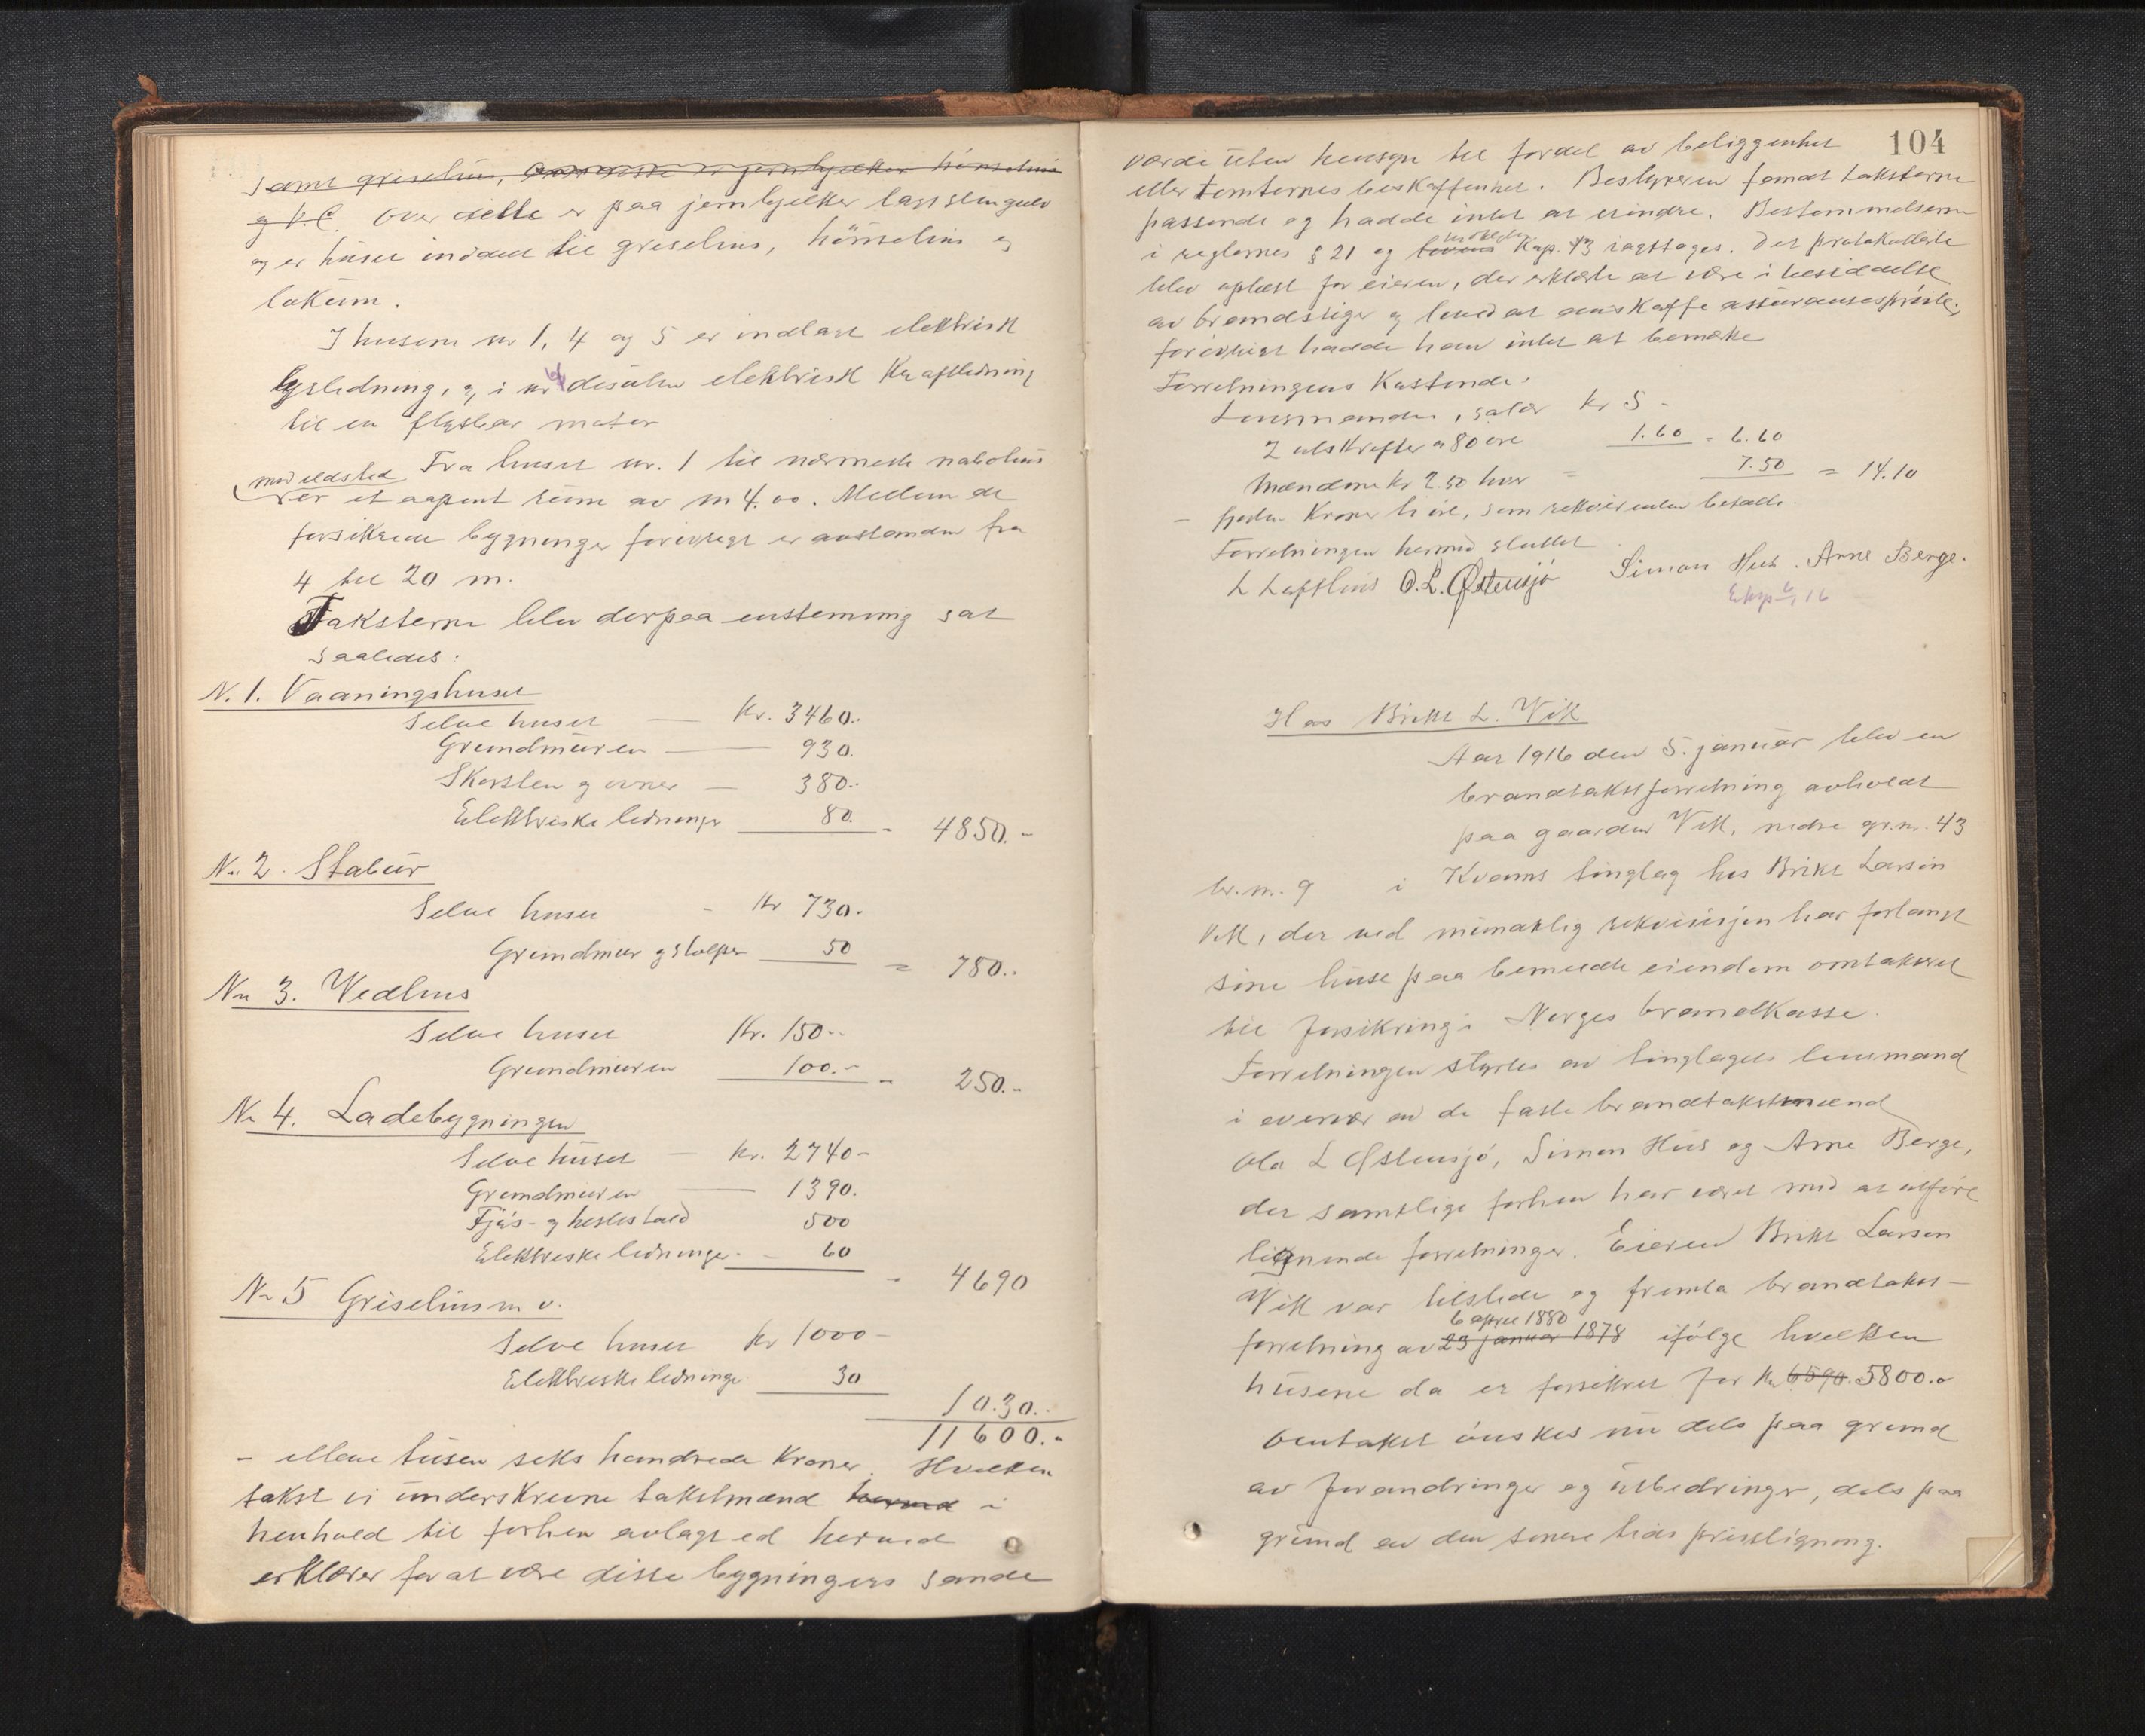 samt griselius, hönselius
og V.C. Over dette er paa jernbjelker lagt stengulv
og er huset inddelt til griselius, hönselius og
lokum.
I husene nr 1, 4 og 5 er indlagt elektrisk
lysledning, og i nr desuten elektrisk kraftledning
til en flytbar motor
med ildsted Fra huset nr. 1 til nærmeste nabohus
er et aapent rum av m 4.00. Mellem de
forsikrede bygninger forøvrigt er avstanden fra
4 til 20 m.
Taksterne blev derpaa enstemmig sat
saaledes:
N. 1. Vaaningshuset
Selve huset — Kr. 3460.-
Grundmuren — 930.
Skorsten og ovner — 380.-
Elektriske ledninger 80. - 4850.-
Nr. 2. Stabur
Selve huset - Kr 730.-
Grundmur og stolper 50 = 780.-
Nr 3. Vedhus
Selve huset Kr. 150.-
Grundmuren 100.- - 250.-
Nr 4. Ladebygningen
Selve huset — Kr. 2740-
Grundmuren — 1390.
Fjös- og hestestald 500
Elektriske ledninger - 60 - 4690
Nr 5 Griselius m v.
Selve huset Kr 1000-
Elektriske ledninge 30
1030.-
11600.-
- elleve tusen seks hundrede kroner. Hvilken
takst vi underskrevne takstmænd hermed i
henhold til forhen avlagt ed hermed
erklærer for at være disse bygningers sande
104
værdi uten hensyn til fordel av beliggenhet
eller tomternes beskaffenhet. Bestyreren fandt taksterne
passende og hadde intet at erindre. Bestemmelserne
i reglernes § 21 og lovens Kap. 13 iagttages. Det protokollerte
blev oplæst for eieren, der erklærte at være i besiddelse
av brandstige og loved at anskaffe assuransesprøite,
forøvrigt hadde han intet at bemerke
Forretningens Kostende:
Lensmanden, salær kr 5 -
2 utskrifter a 80 øre 1.60 - 6.60
Mændene kr 2.50 hver = 7.50 = 14.10
- fjorten Kroner ti øre, som rekvirenten betalte.
Forretningen hermed sluttet
L Lofthus O. L. Østensjö Simon Hus. Arne Berge.
Eksp 16
Hos Brikt L. Vik
Aar 1916 den 5. januar blev en
brandtakstforretning avholdt
paa gaarden Vik, nedre gr.nr. 43
br.nr. 9 i Kvams tinglag hos Brikt Larsen
Vik, der ved mundtlig rekvisisjon har forlangt
sine huse paa bemeldte eiendom omtaksert
til forsikring i Norges brandkasse.
Forretningen styrtes av tinglagets lensmand
i overvær av de faste brandtakstmænd
Ola L Østensjö, Simon Hus og Arne Berge,
der samtlige forhen har været med at utføre
lignende forretninger. Eieren Brikt Larsen
Vik var tilstede og fremla brandtakst-
6 april 1880
forretning av 23 januar 1878 ifølge hvilken
husene da er forsikret for Kr 6590. 5800.-
Omtakst ønskes nu dels paa grund
av forandringer og utbedringer, dels paa
grund av den senere tids prisstigning.